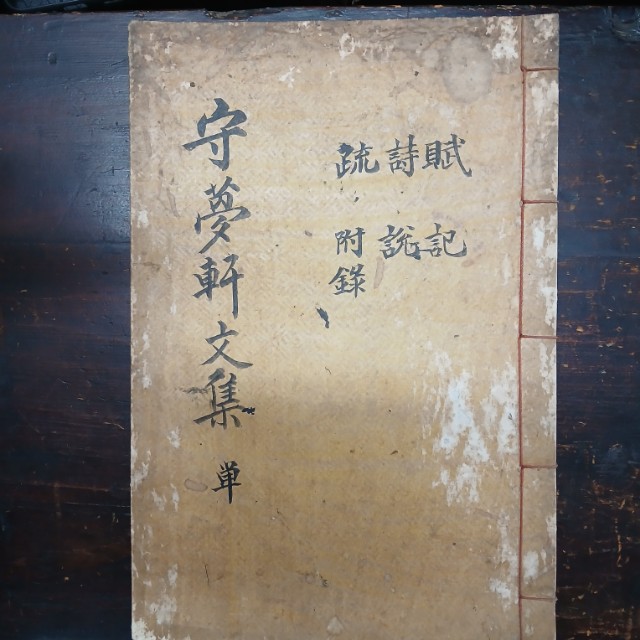 賦 記
詩 說
疏 附錄
守夢軒文集 单